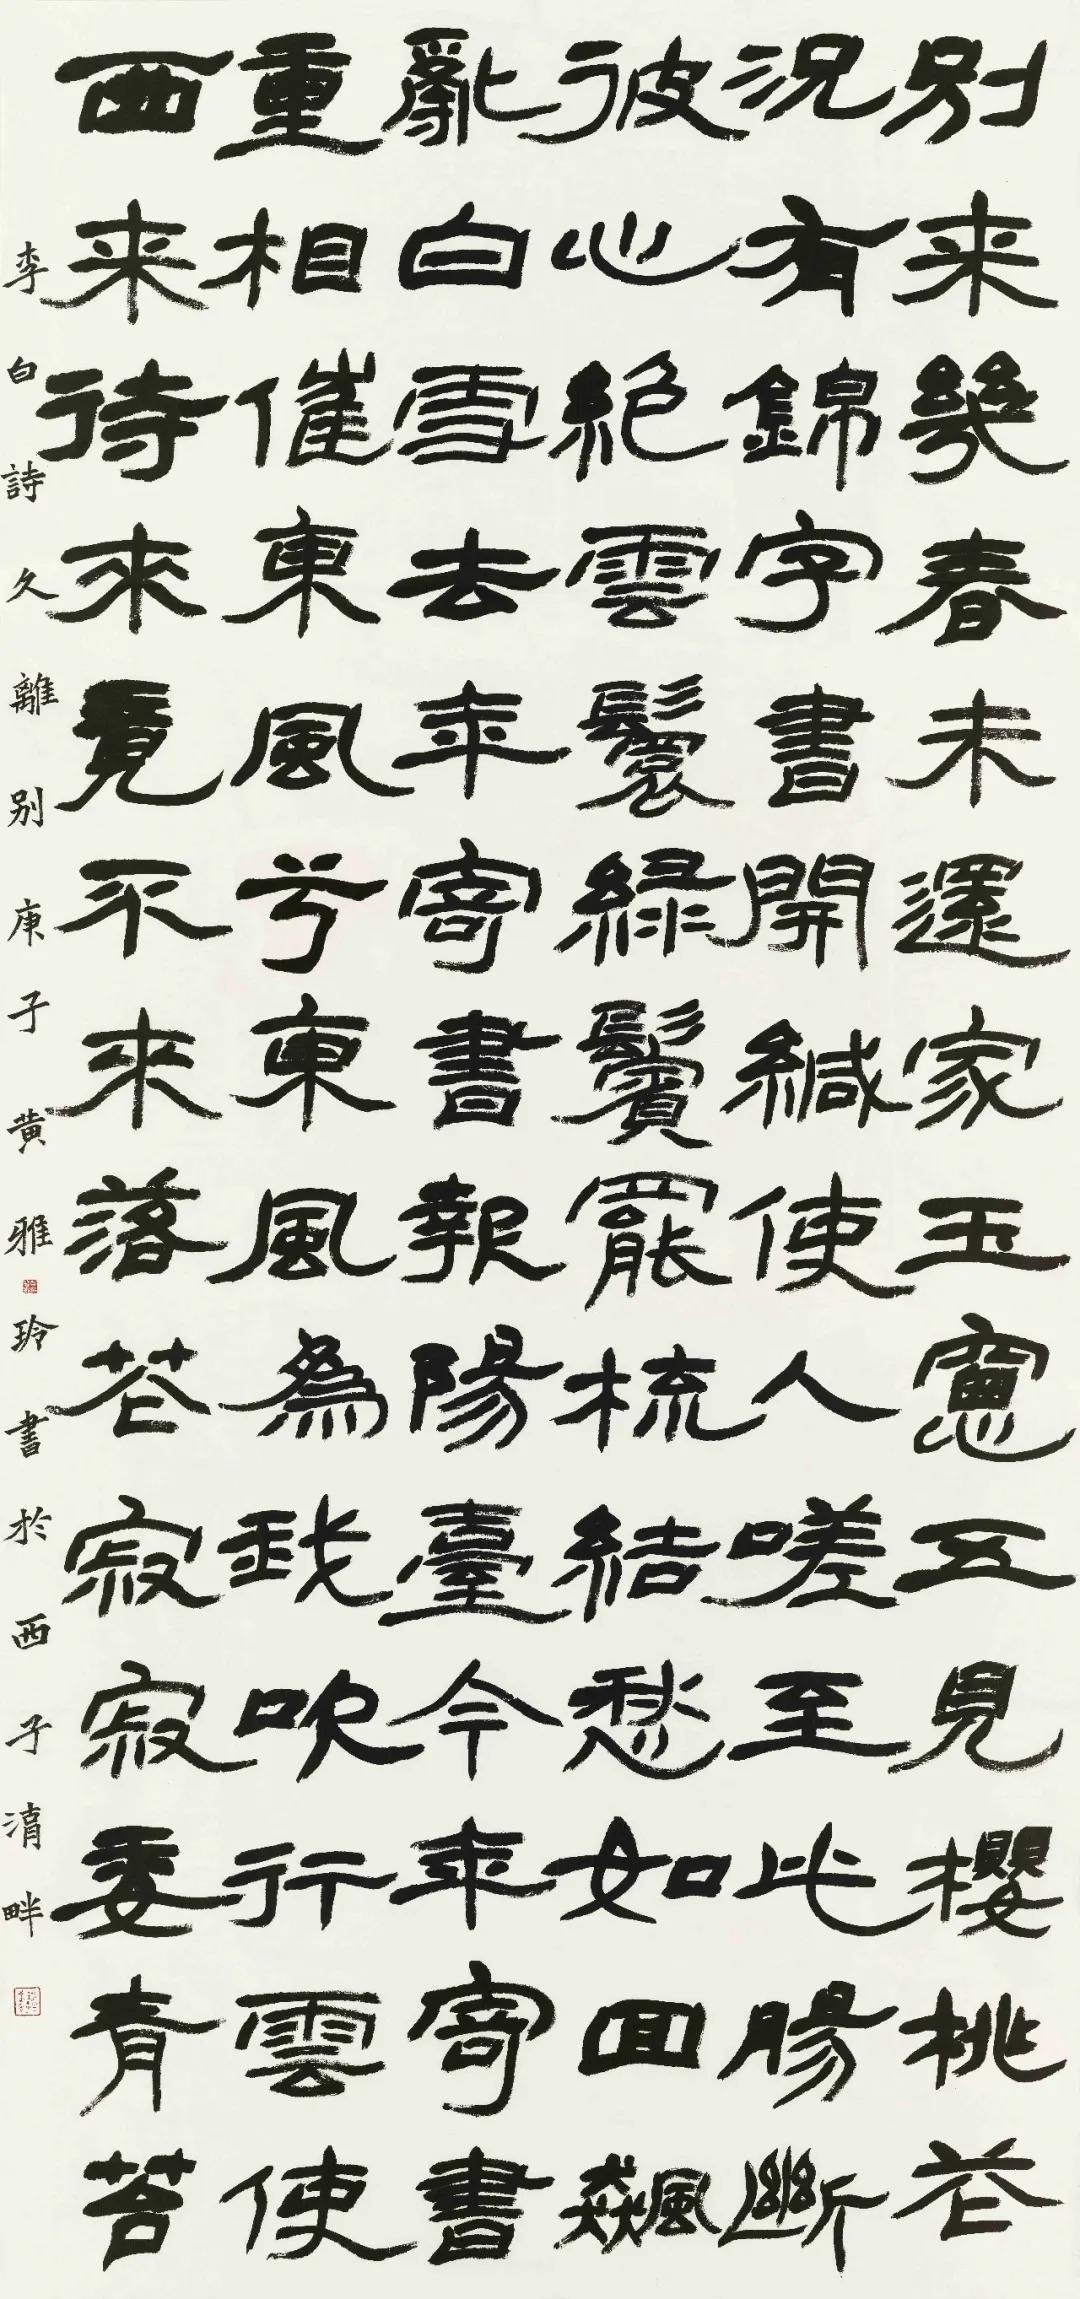 別来幾春未還家玉窻五見櫻桃花
況有錦字書開緘使人嗟至此腸斷
彼心絕雲鬟綠鬢罷梳結愁如回飆
亂白雪去年寄書報陽臺今年寄書
重相催東風兮東風為我吹行雲使
西来待來竟不來落花寂寂委青苔
李白詩久離別庚子黄雅玲書於西子湖畔